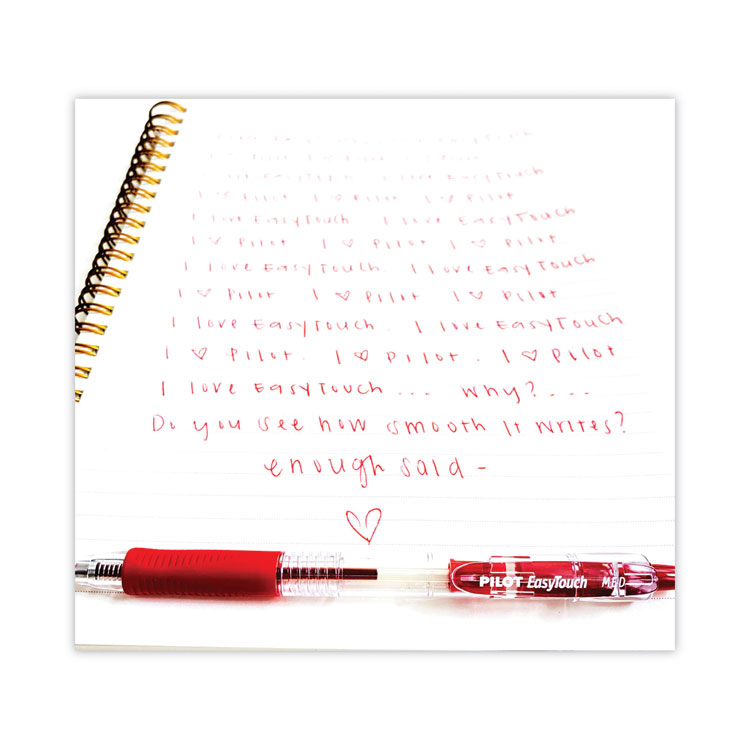 EasyTouch
I ♡ Pilot
I love EasyTouch I love EasyTouch
I ♡ Pilot I ♡ Pilot I ♡ Pilot
I love EasyTouch I love EasyTouch
I ♡ Pilot I ♡ Pilot I ♡ Pilot
I love EasyTouch. I love EasyTouch
I ♡ Pilot I ♡ Pilot I ♡ Pilot
I love EasyTouch. I love EasyTouch
I ♡ Pilot. I ♡ Pilot. I ♡ Pilot
I love EasyTouch... Why?....
Do you see how smooth it writes?
enough said -
♡
PILOT EasyTouch MED